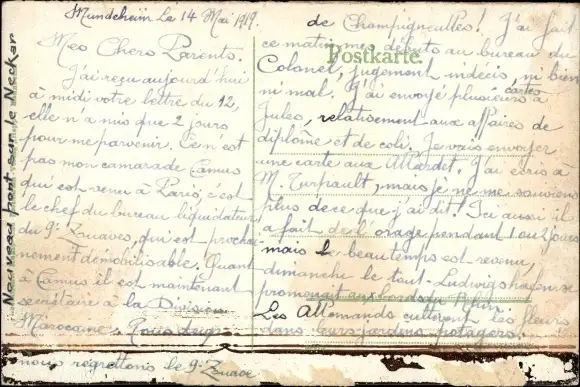 Mundeheim Le 14 Mai 1919.
Mes Chers Parents.
J'ai reçu aujourd'hui
à midi votre lettre du 12,
elle n'a mis que 2 jours
pour me parvenir. Ce n'est
pas mon camarade Camus
qui est venu à Paris, c'est
le chef du bureau liquidateur
du 9e Zouaves, qui est prochai-
nement démobilisable. Quant
à Camus il est maintenant
secrétaire à la Division
Marocaine. Tous
nous regrettons le 9e Zouave
de Champigneulles! J'ai fait
ce matin mes débuts au bureau du
Postkarte.
Colonel, jugement indécis, ni bien
ni mal. J'ai envoyé plusieurs cartes à
Jules, relativement aux affaires de
diplôme et de coli. Je vais envoyer
une carte aux Allardet. J'ai écris à
M. Turpault, mais je ne me souviens
plus de ce que j'ai dit! Ici aussi il
a fait de l'orage pendant 1 ou 2 jours
mais le beau temps est revenu,
dimanche le tout-Ludwigshafen se
promenait aux bords du Rhin.
Les Allemands cultivent les fleurs
dans leurs jardins potagers.
Nouveau pont sur le Neckar